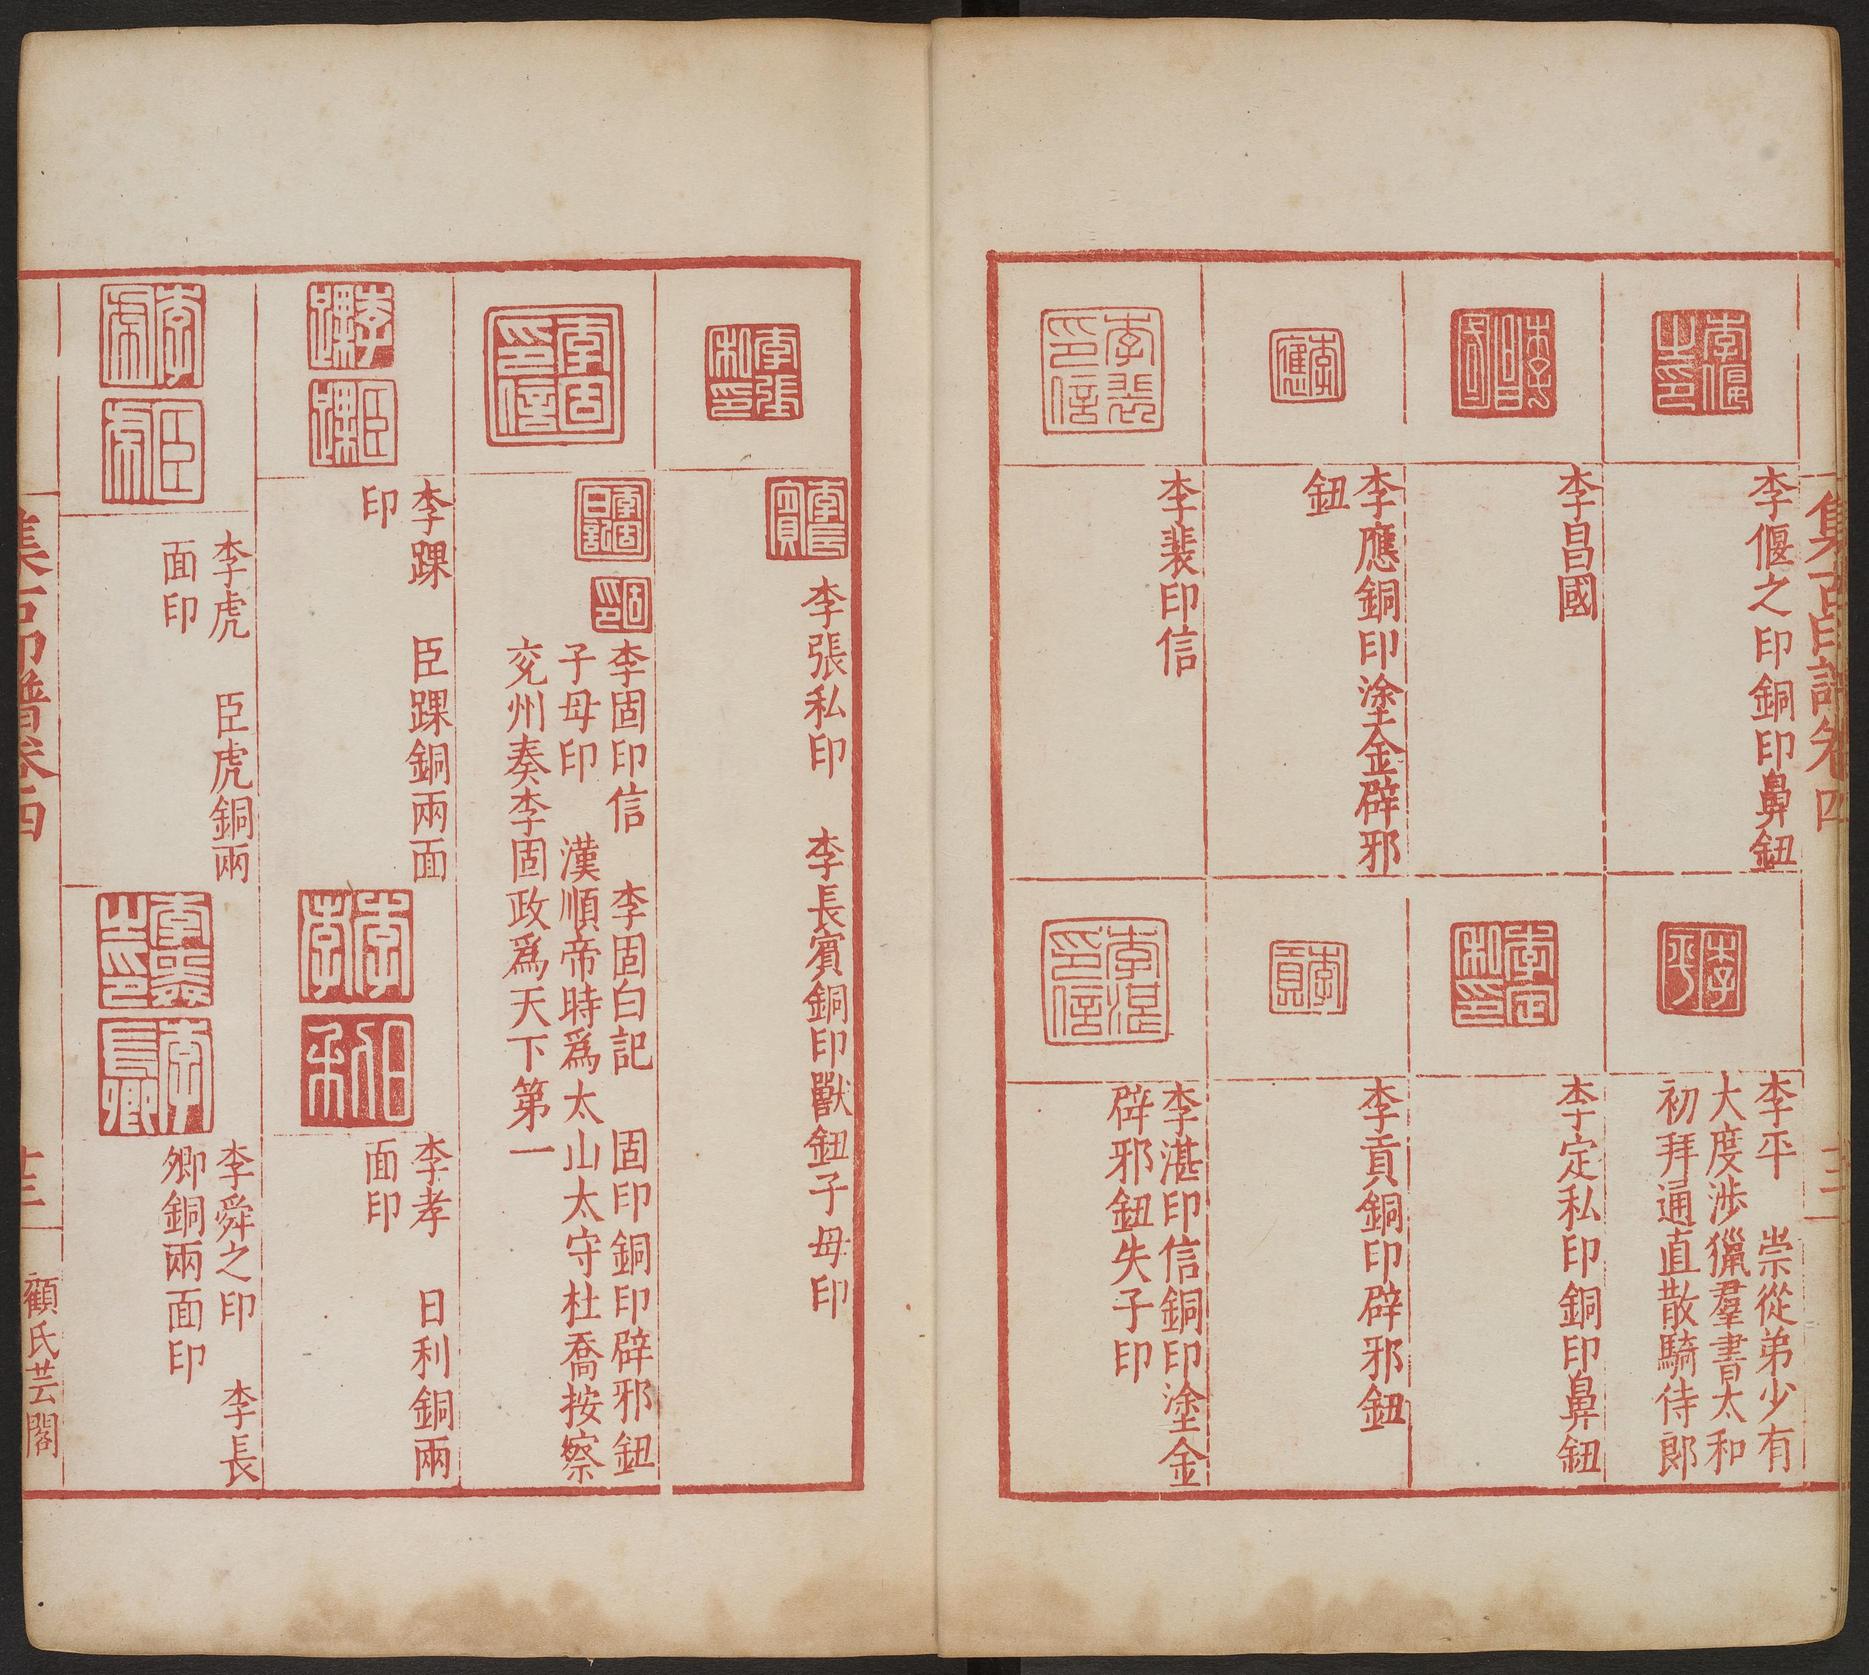 集古印譜卷四
李偃之印銅印鼻鈕
李昌國
李應銅印塗金辟邪
鈕
李裴印信
李平 崇從弟少有
大度涉獵羣書太和
初拜通直散騎侍郎
李定私印銅印鼻鈕
李貢銅印辟邪鈕
李湛印信銅印塗金
辟邪鈕失子印
李張私印 李長賓銅印獸鈕子母印
李固印信 李固白記 固印銅印辟邪鈕
子母印 漢順帝時爲太山太守杜喬按察
兗州奏李固政爲天下第一
李踝 臣踝銅兩面
印
李孝 日利銅兩
面印
李虎 臣虎銅兩
面印
李舜之印 李長
卿銅兩面印
集古印譜卷四
顧氏芸閣